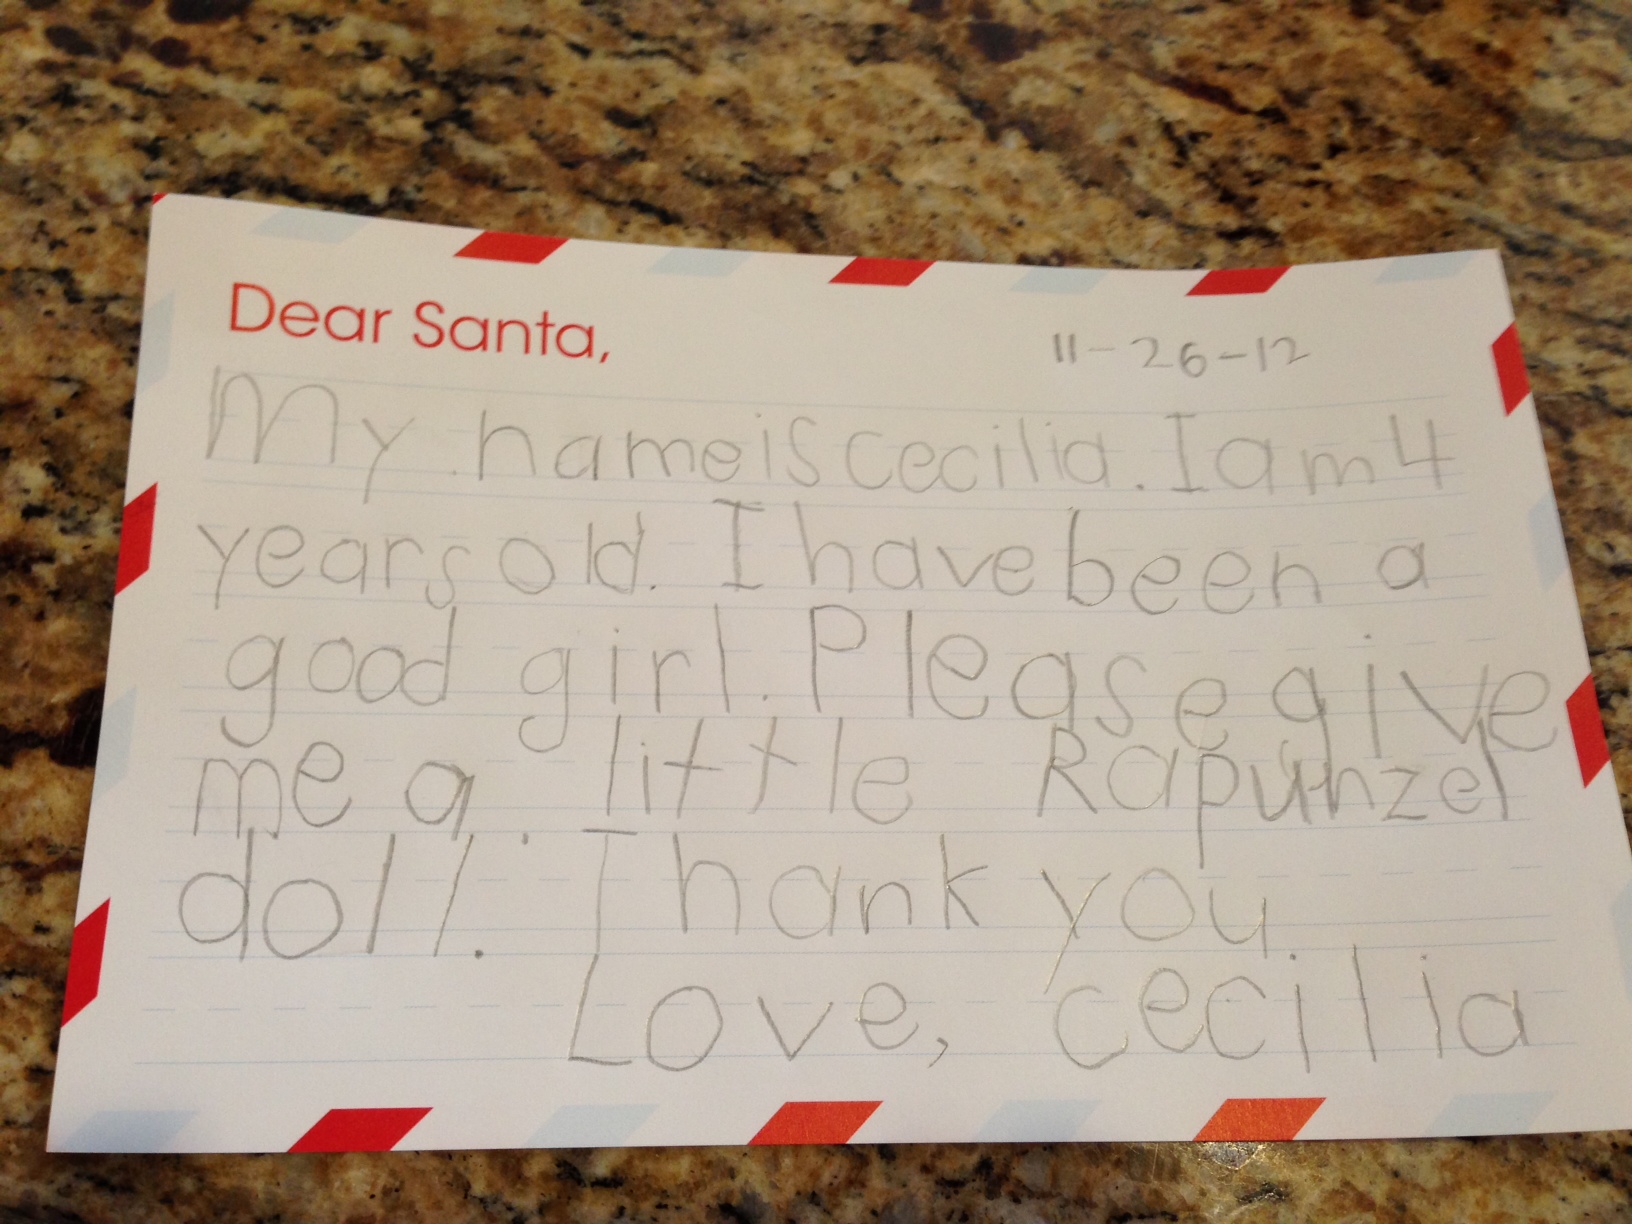 Dear Santa,
11-26-12
My name is cecilia. I am 4
years old. I have been a
good girl. Please give
me a little Rapunzel
doll. Thank you
Love, cecilia